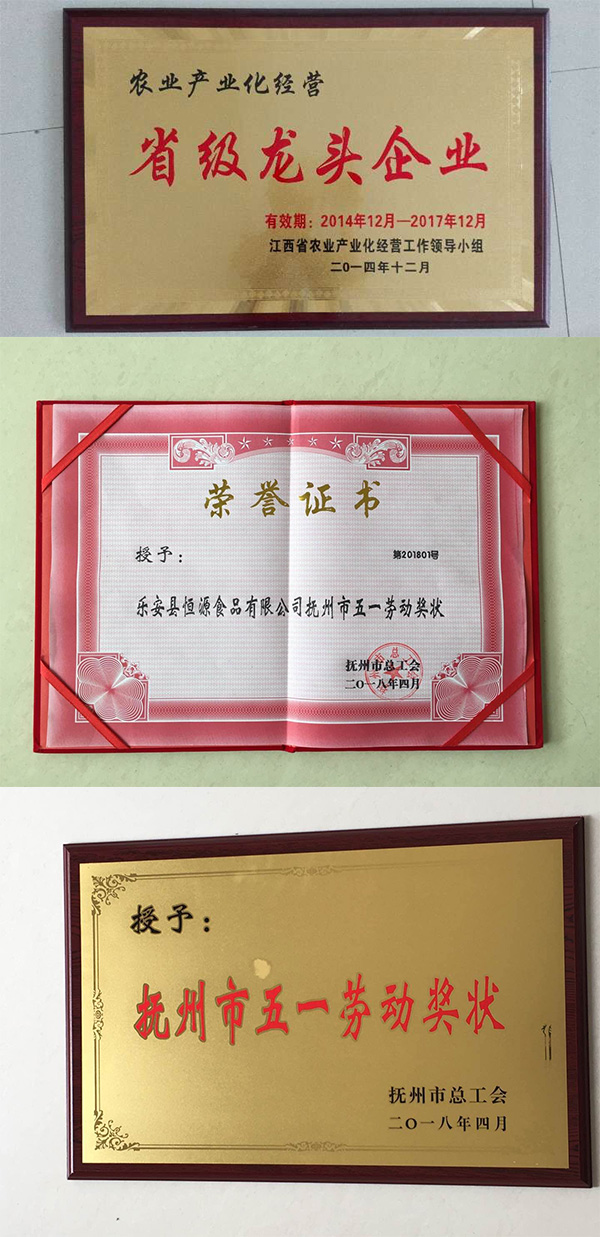 农业产业化经营
省级龙头企业
有效期：2014年12月—2017年12月
江西省农业产业化经营工作领导小组
二O一四年十二月
荣誉证书
授予：
第201801号
乐安县恒源食品有限公司抚州市五一劳动奖状
抚州市总工会
二O一八年四月
授予：
抚州市五一劳动奖状
抚州市总工会
二O一八年四月